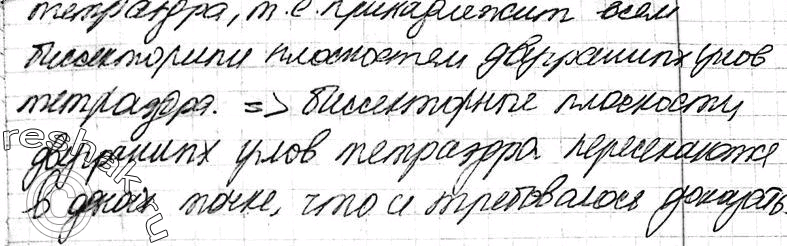 тетраэдра, т.е. принадлежит всем
биссекторным плоскостям двугранных углов
тетраэдра. => биссекторные плоскости
двугранных углов тетраэдра пересекаются
в одной точке, что и требовалось доказать.
reshak.ru